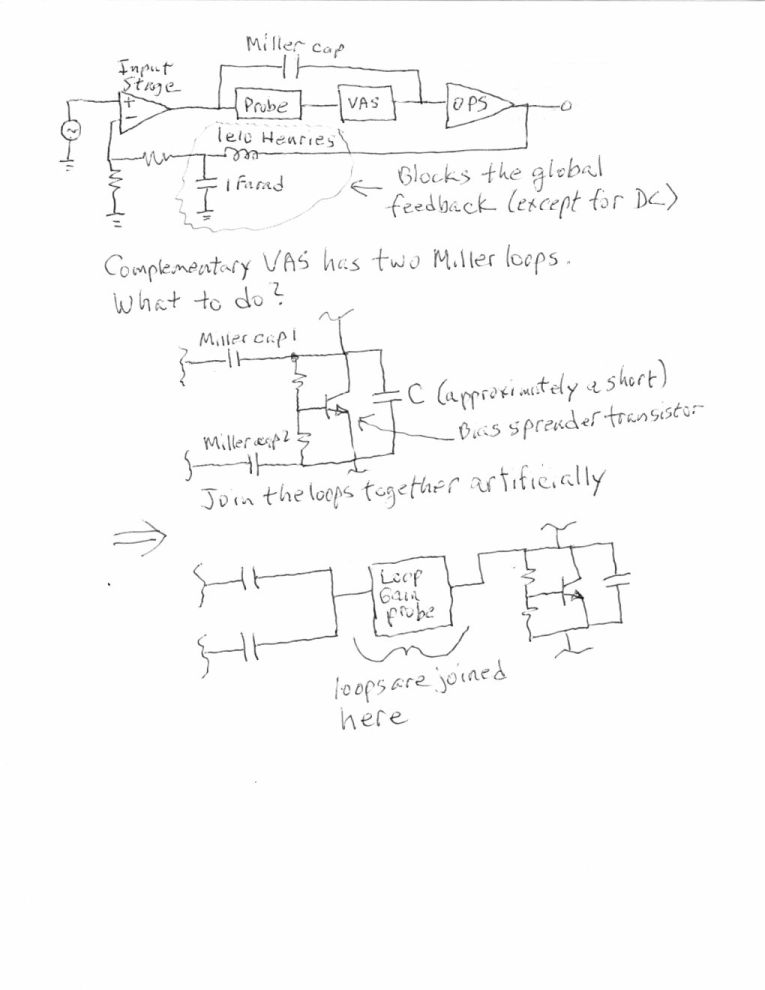 Miller cap
Input
Stage
+
−
Probe
VAS
OPS
1e10 Henries
1 Farad
← Blocks the global
feedback (except for DC)
Complementary VAS has two Miller loops.
What to do?
Miller cap 1
C (approximately a short)
Bias spreader transistor
Miller cap 2
Join the loops together artificially
⇒
Loop
Gain
Probe
loops are joined
here